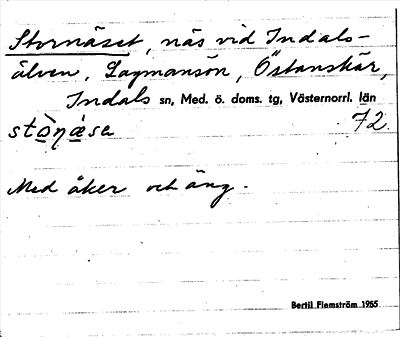 Stornäset, näs vid Indals-
älven, Lagmansön, Östanskär,
Indals sn, Med. ö. doms. tg, Västernorrl. län
stò̱ŋæ̀sa 72.
Med åker och äng.
Bertil Flemström 1955